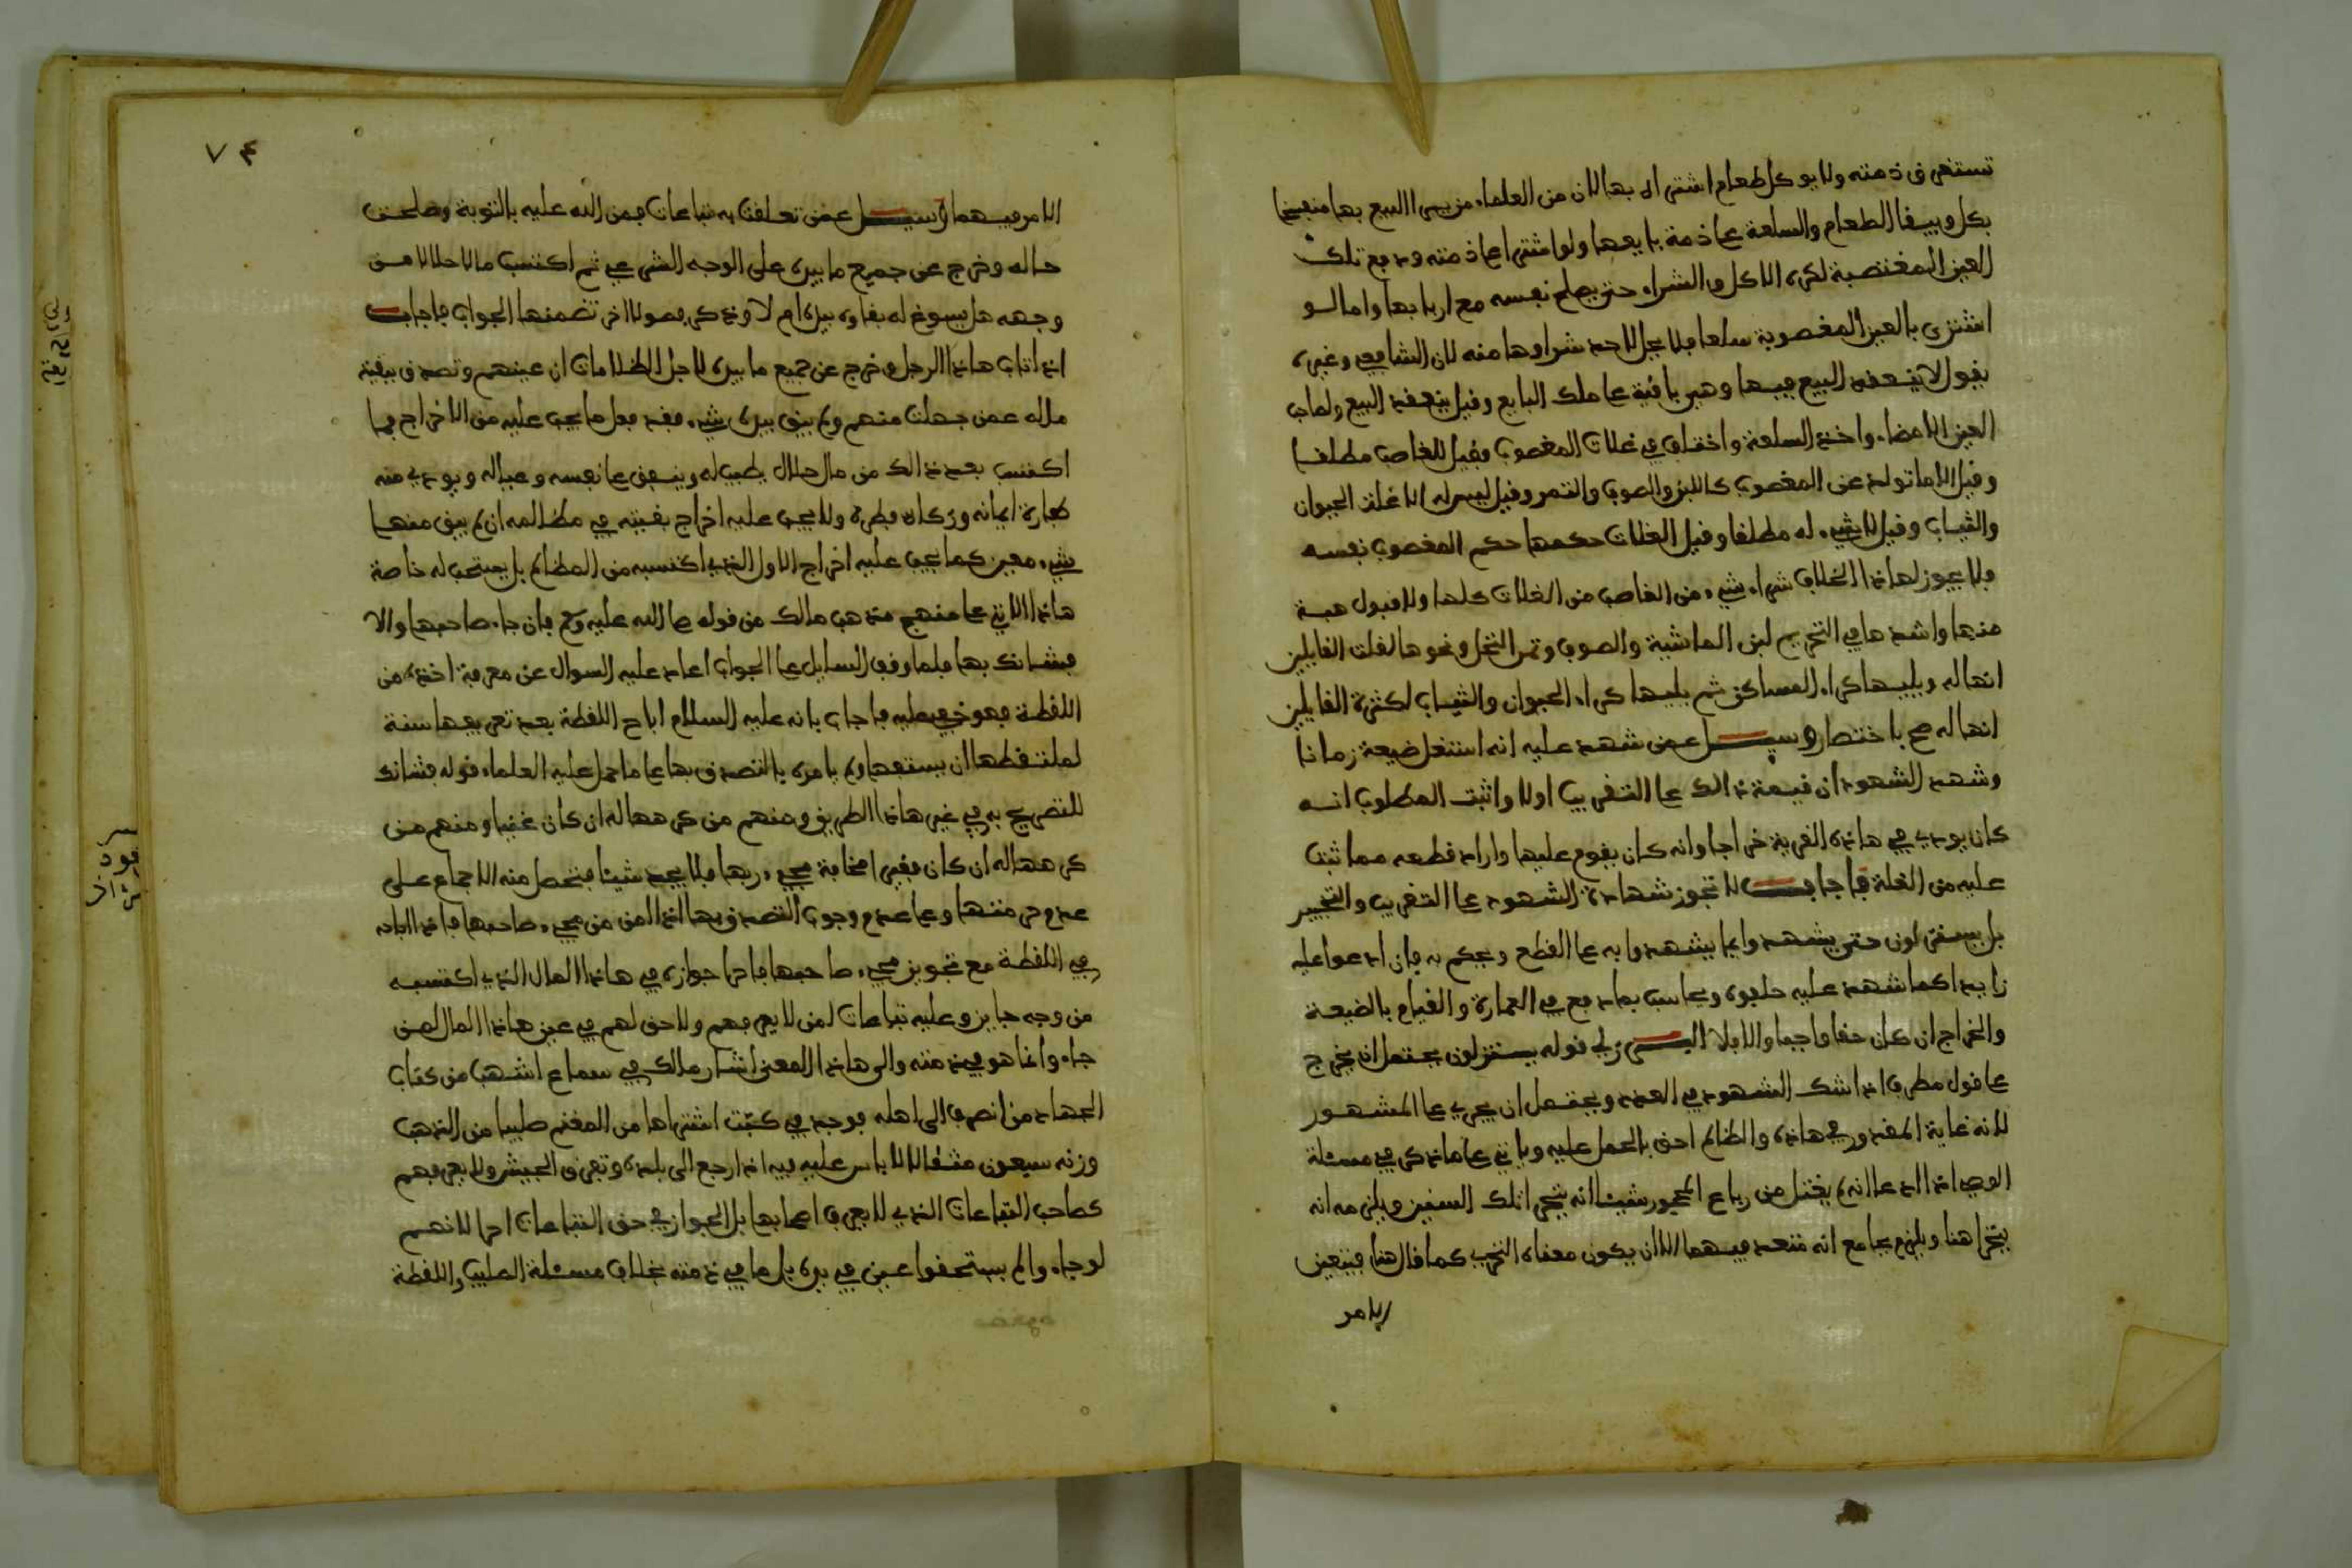 تستغرق ذمته ولا يوكل طعام اشتراه بها لان من العلماء من يرى البيع بها منفسخا
بكل ويبقا الطعام والسلعة على ذمة بايعها ولو اشترا على ذمته ودفع تلك
العين المغتصبة لكره الاكل والشراء حتى يصلح نفسه مع اربابها واما لو
اشترى بالعين المغصوبة سلعا فلا يحل لاحد شراوها منه لان الشافعي وغيره
يقول لا ينعقد البيع فيها وهي باقية على ملك البايع وقيل ينعقد البيع ولصاحب
العين الامضاء واخذ السلعة واختلف في غلات المغصوب فقيل للغاصب مطلقا
وقيل الا ما تولد عن المغصوب كاللبن والصوف والتمر وقيل ليس له الا غلة الحيوان
والثياب وقيل لا شيء له مطلقا وقيل الغلات حكمها حكم المغصوب نفسه
ولا يجوز لهاذا الخلاف شراء شيء من الغاصب من الغلات كلها ولا قبول هبة
منها واشدها في التحريم لبن الماشية والصوف وتمر النخل ونحوها لقلة القايلين
انها له ويليها كراء المساكن ثم يليها كراء الحيوان والثياب لكثرة القايلين
انها له صح باختصار وسيل عمن شهد عليه انه استغل ضيعة زمانا
وشهد الشهود ان قيمة ذالك على التقريب اولا واثبت المطلوب انه
كان يودي في هاذه القرية خراجا وانه كان يقوم عليها واراد قطعه مما ثبت
عليه من الغلة فاجاب لا تجوز شهادة الشهود على التقريب والتخيير
بل يستنزلون حتى يشهدوا بما يشهدوا به على القطع ويحكم به فان ادعوا عليه
زايدا كما شهد عليه حلفوه ويحاسب بما دفع في العمارة والقيام بالضيعة
والخراج ان كان حقا واجبا والا فلا البرزلي قوله يستنزلون يحتمل ان يخرج
على قول مطرف اذا شك الشهود في العدد ويحتمل ان يجري على المشهور
لانه غاية المقدور في هاذه والظالم احق بالحمل عليه وياتي على ما ذكر في مسئلة
الوصي اذا ادعا انه لم يغتل من رباع المحجور شيئا انه يتحرى تلك السنين ويلزمه انه
يتحرا هنا ويلزم بجامع انه متعد فيهما الا ان يكون معناه التحري كما قال هنا فيتعين
الامر
٧٤
الامر فيهما وسيل عمن تعلقت به تباعات فمن الله عليه بالتوبة وصلحت
حاله وخرج عن جميع ما بيده على الوجه الشرعي ثم اكتسب مالا حلالا من
وجهه هل يسوغ له بقاوه بيده ام لا وذكر فصولا اخر تضمنها الجواب فاجاب
اذا تاب هاذا الرجل وخرج عن جميع ما بيده لاجل الظلامات ان عينهم وتصدق ببقية
ماله عمن جهلت منهم ولم يبق بيده شيء فقد فعل ما يجب عليه من الاخراج فما
اكتسب بعد ذالك من مال حلال يطيب له وينفق على نفسه وعياله ويودي منه
كفارة ايمانه وزكاة فطره ولا يجب عليه اخراج بقيته في مظالمه ان لم يبق منها
شيء معين كما يجب عليه اخراج الاول الذي اكتسبه من المظالم بل يستحب له خاصة
هاذا الاتي على منهج مذهب مالك من قوله صلى الله عليه وسلم فان جاء صاحبها والا
فشانك بها فلما وقف السايل على الجواب اعاد عليه السوال عن معرفة اخذه من
اللقطة فهو خفي عليه فاجاب بانه عليه السلام اباح اللقطة بعد تعريفها سنة
لملتقطها ان يستنفقها ولم يامره بالتصدق بها على ما حمل عليه العلماء قوله فشانك
للتصريح به في غير هاذا الطريق ومنهم من كرهها له ان كان غنيا ومنهم من
كرهها له ان كان فقيرا مخافة مجيء ربها فلا يجد شيئا فتحصل منه الاجماع على
عدم حرمتها وعلى عدم وجوب التصدق بها اذا امن من مجيء صاحبها فاذا اباحه
في اللقطة مع تجويز مجيء صاحبها فاحرا جوازه في هاذا المال الذي اكتسبه
من وجه جايز وعليه تباعات لمن لا يعرفهم ولا حق لهم في عين هاذا المال لمن
جاء وانما هو في ذمته والى هاذا المعنى اشار مالك في سماع اشهب من كتاب
الجهاد من انصرف الى اهله فوجد في كبة اشتراها من المغنم صليبا من الذهب
وزنه سبعون مثقالا لا باس عليه فيه اذا رجع الى بلده وتفرق الجيش ولا يعرفهم
كصاحب التباعات الذي لا يعرف اصحابها بل الجواز في حق التباعات احرا لانهم
لو جاءوا لم يستحقوا عين في يده بل ما في ذمته بخلاف مسئلة الصليب واللقطة